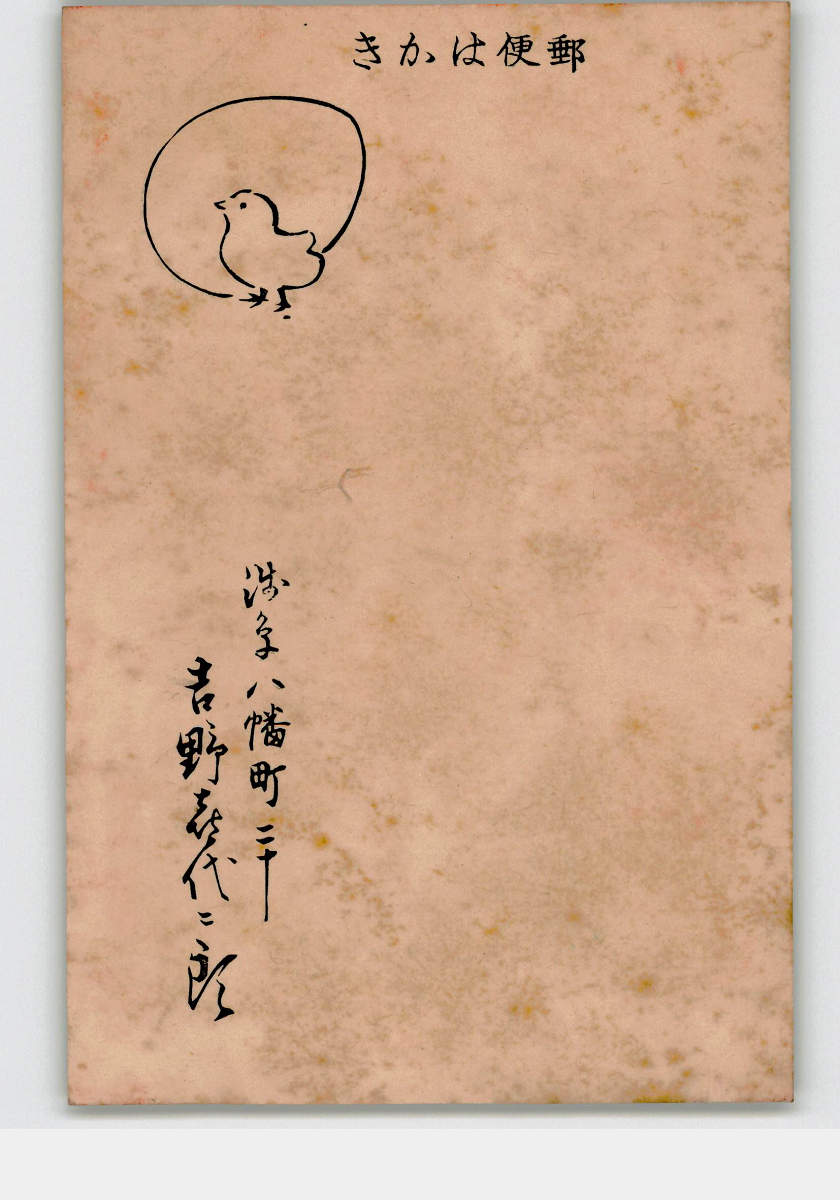 郵便はかき
浅草八幡町二十
吉野喜代二郎